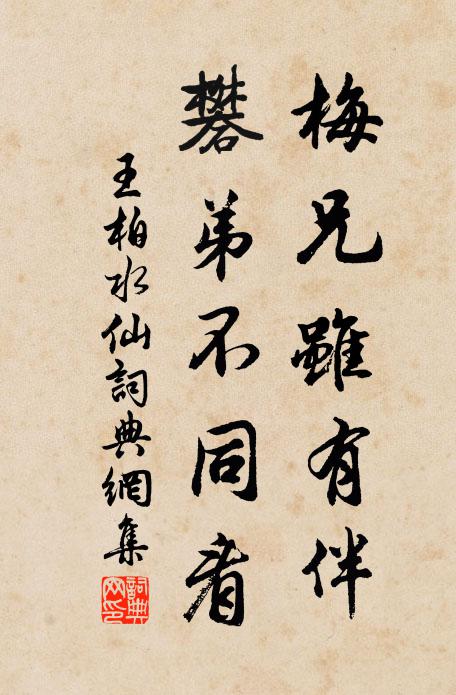 梅兄雖有伴
礬弟不同看
王柏水仙詞典網集
詞典網印